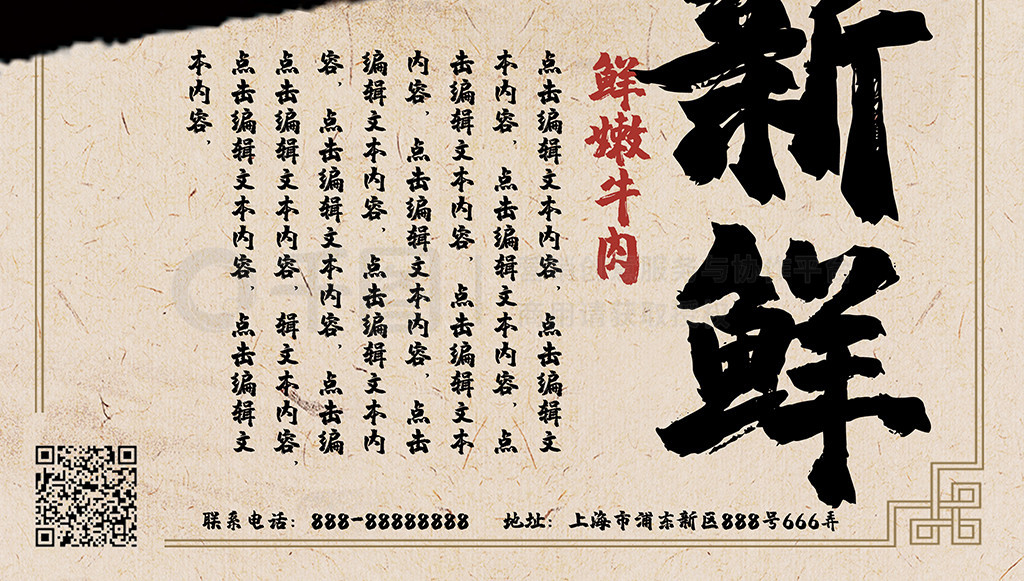 新鲜
鲜嫩牛肉
点击编辑文本内容，点击编辑文
本内容，点击编辑文本内容，点
击编辑文本内容，点击编辑文本
内容，点击编辑文本内容，点击
编辑文本内容，点击编辑文本内
容，点击编辑文本内容，点击编
点击编辑文本内容，辑文本内容，
点击编辑文本内容，点击编辑文
本内容，
联系电话：888-88888888 地址：上海市浦东新区888号666弄